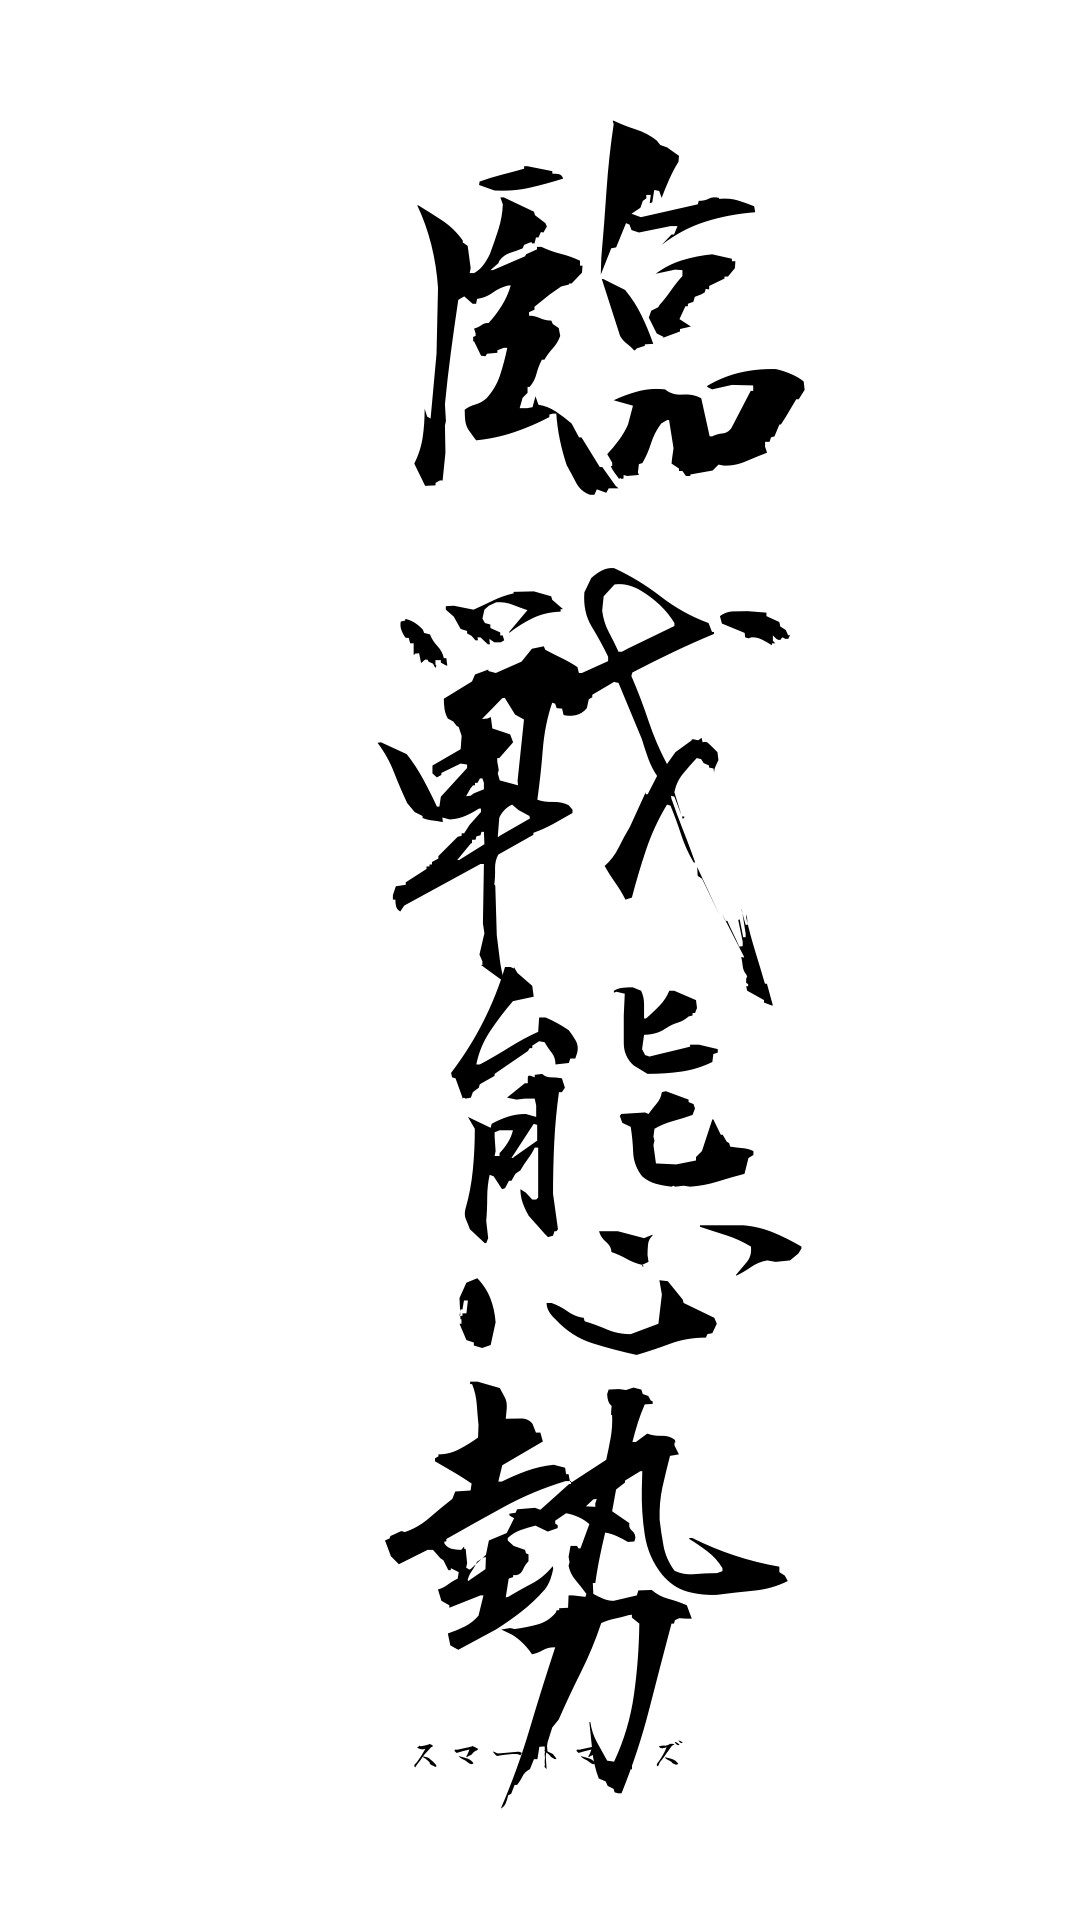 臨戦態勢
スマートマ ズ